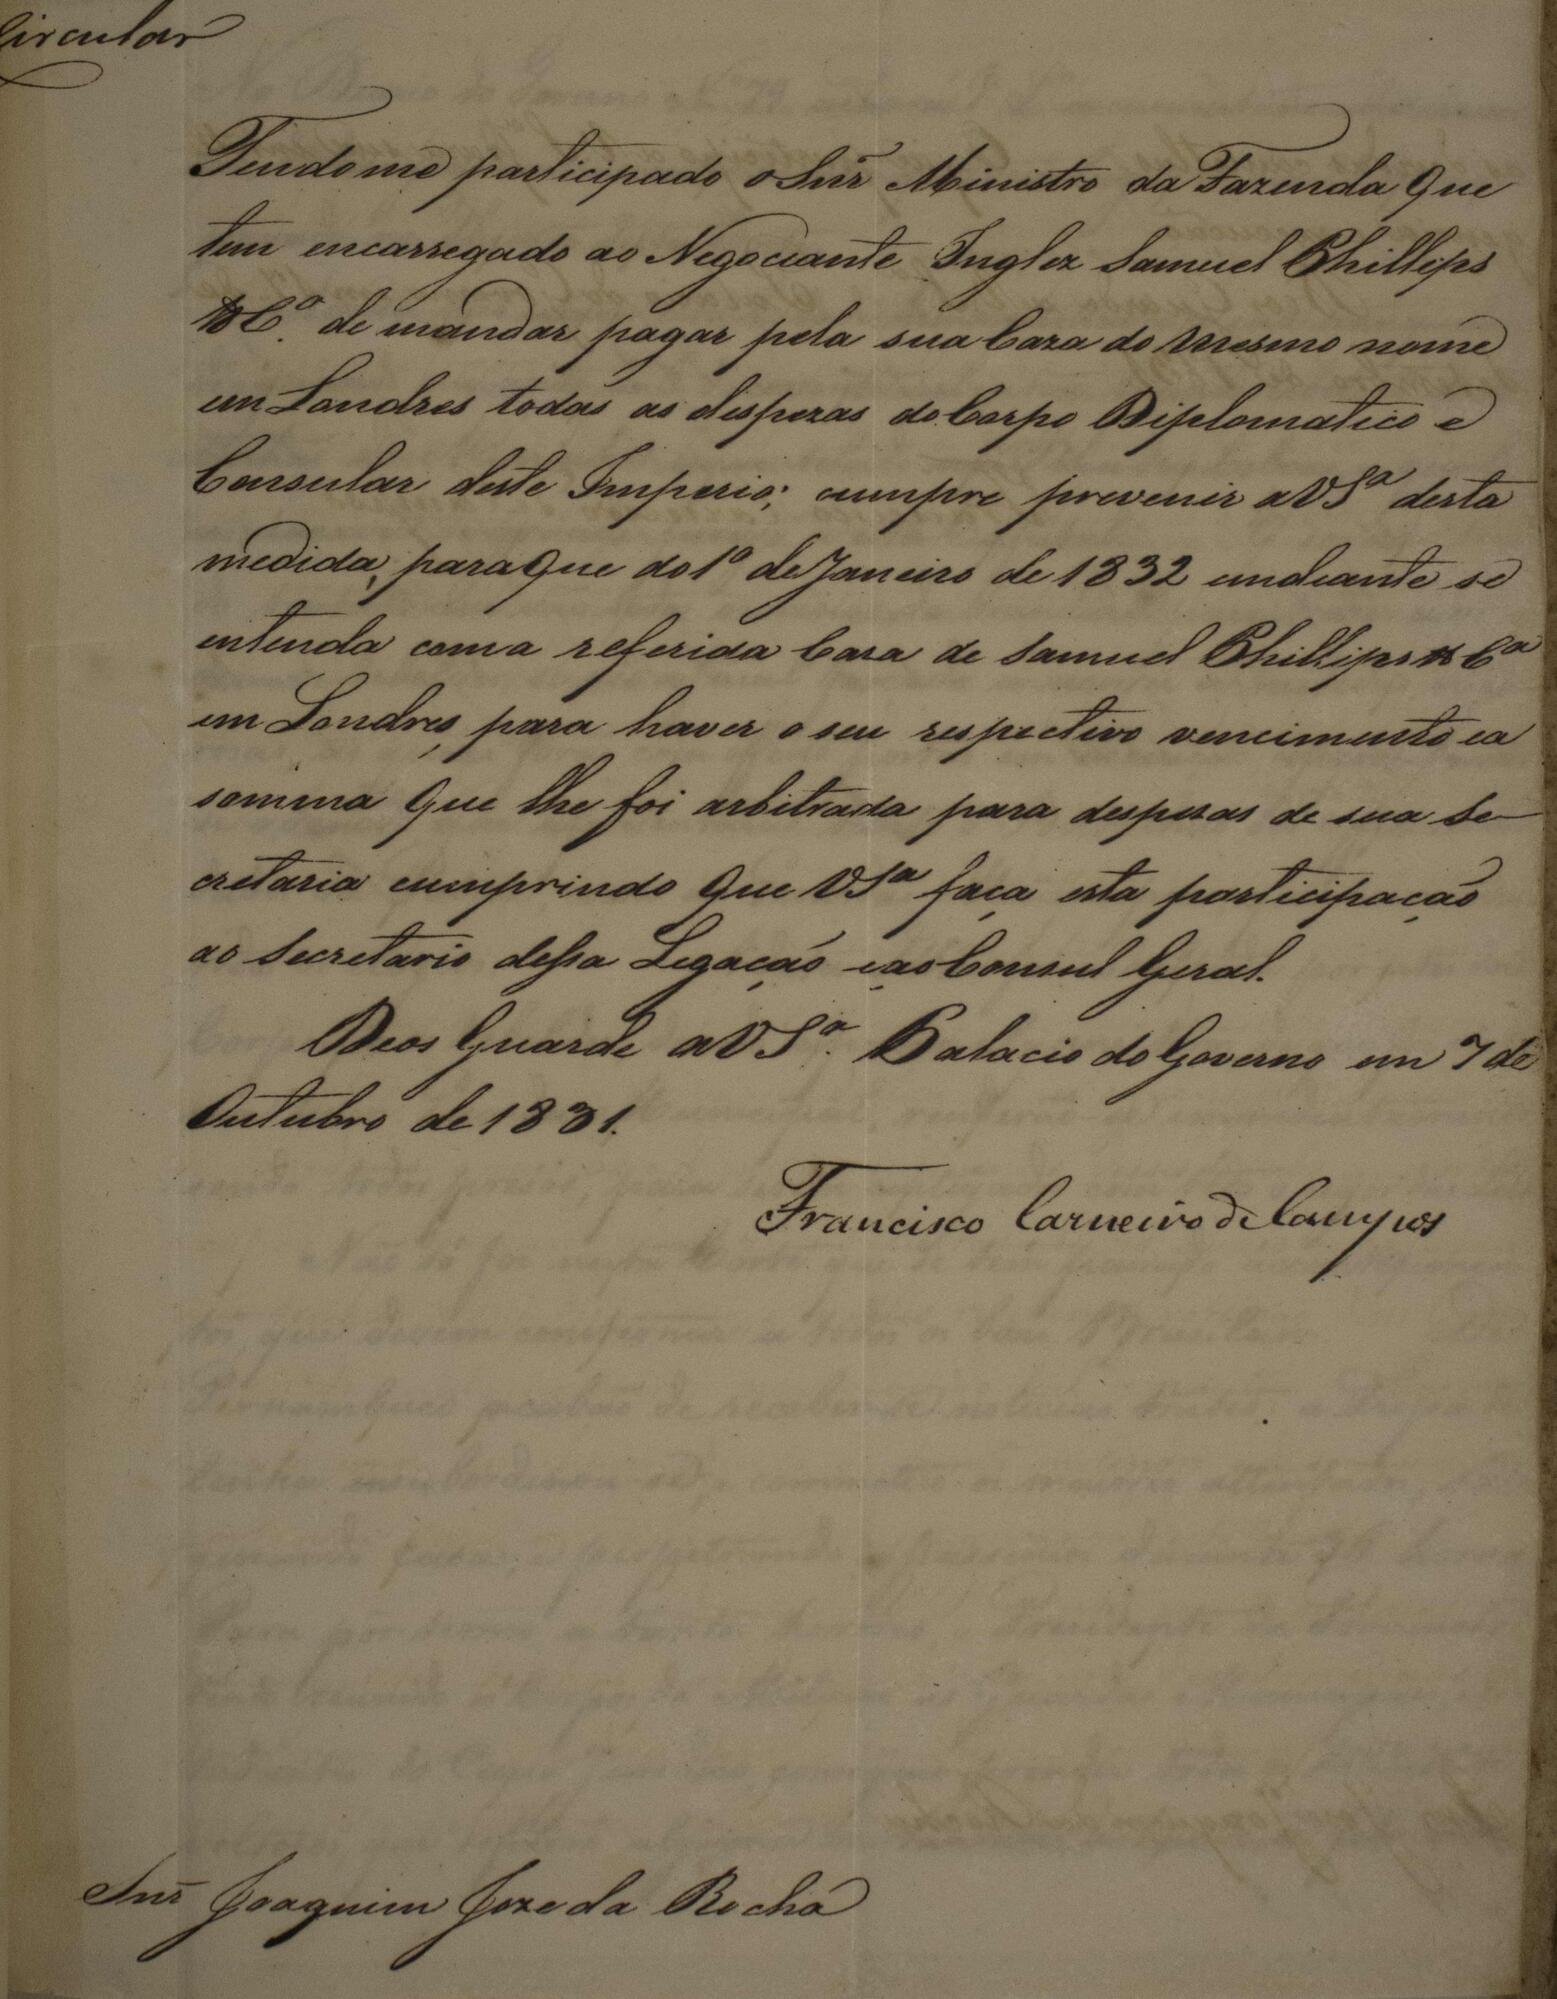 Circular
Tendome participado o Snr̃ Ministro da Fazenda que
tem encarregado ao Negociante Inglez Samuel Phillips
& Cº. de mandar pagar pela sua Caza do mesmo nome
em Londres todas as despezas do Corpo Diplomatico e
Consular deste Imperio; cumpre prevenir a VSª desta
medida, para que do 1º de Janeiro de 1832 em diante se
entenda com a referida Caza de Samuel Phillips & Cª
em Londres, para haver o seu respectivo vencimento e a
somma que lhe foi arbitrada para despezas de sua Se-
cretaria cumprindo que VSª faça esta participação
ao Secretario dessa Legação e ao Consul Geral.
Deos Guarde a VSª. Palacio do Governo em 7 de
Outubro de 1831.
Francisco Carneiro de Campos
Snr̃ Joaquim Joze da Rocha